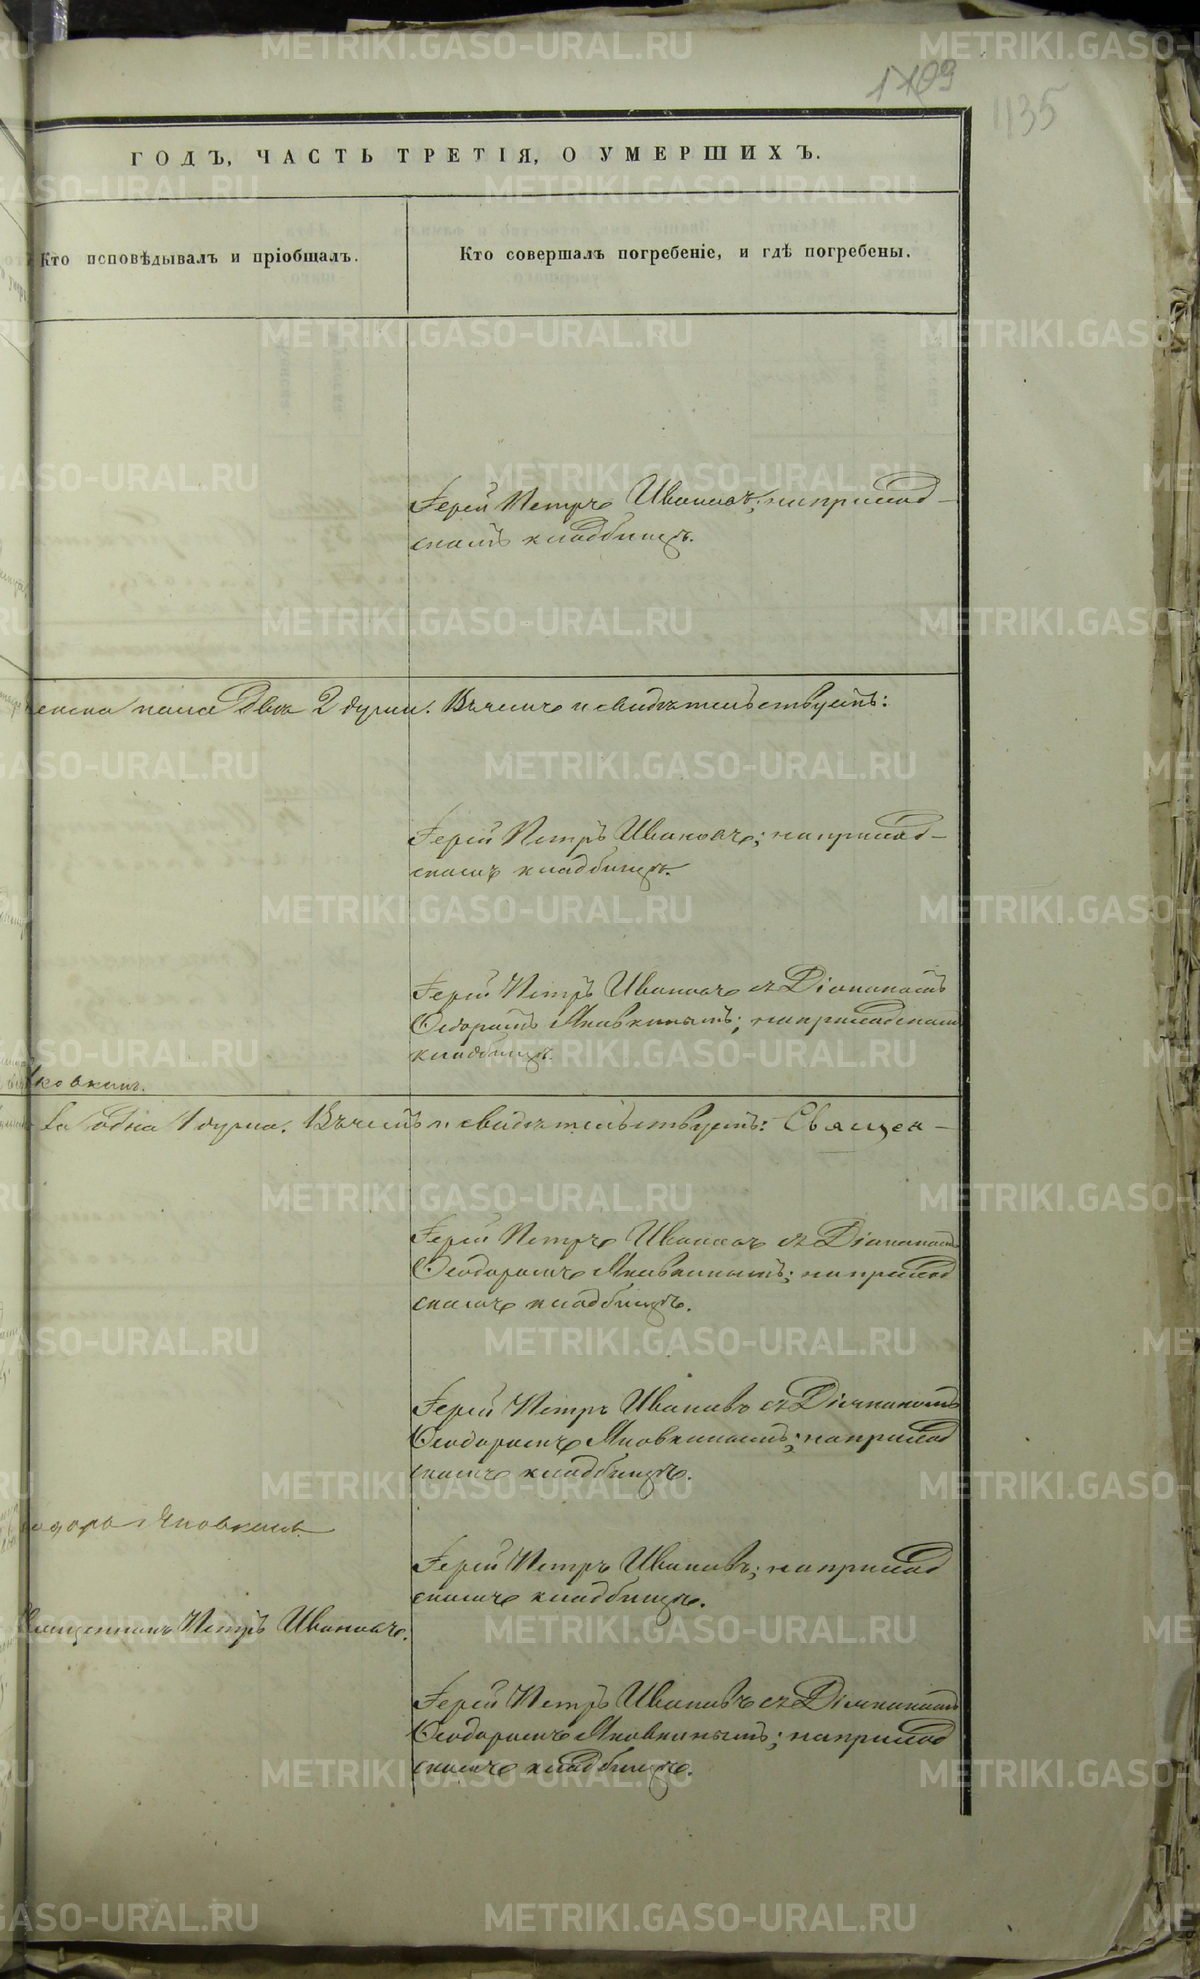 1109
1135
ГОДЪ, ЧАСТЬ ТРЕТІЯ, О УМЕРШИХЪ.
Кто исповѣдывалъ и пріобщалъ.
Кто совершалъ погребеніе, и гдѣ погребены.
Іерей Петръ Ивановъ; на приход-
скомъ кладбищѣ.
пола двѣ 2 души. Въ чемъ и свидѣтельствуетъ:
Іерей Петръ Ивановъ; на приход-
скомъ кладбищѣ.
Іерей Петръ Ивановъ съ Діакономъ
Ѳедоромъ Яковкинымъ; на приходскомъ
кладбищѣ.
ковкинъ.
одна 1 душа. Въ чемъ и свидѣтельствуетъ: Священ-
Іерей Петръ Ивановъ съ Діакономъ
Ѳеодоромъ Яковкинымъ; на приход
скомъ кладбищѣ.
Іерей Петръ Ивановъ съ Діакономъ
Ѳеодоромъ Яковкинымъ; на приход
скомъ кладбищѣ.
одоръ Яковкинъ.
Іерей Петръ Ивановъ; на приход
скомъ кладбищѣ.
Священникъ Петръ Ивановъ.
Іерей Петръ Ивановъ съ Діакономъ
Ѳеодоромъ Яковкинымъ; на приход
скомъ кладбищѣ.
METRIKI.GASO-URAL.RU